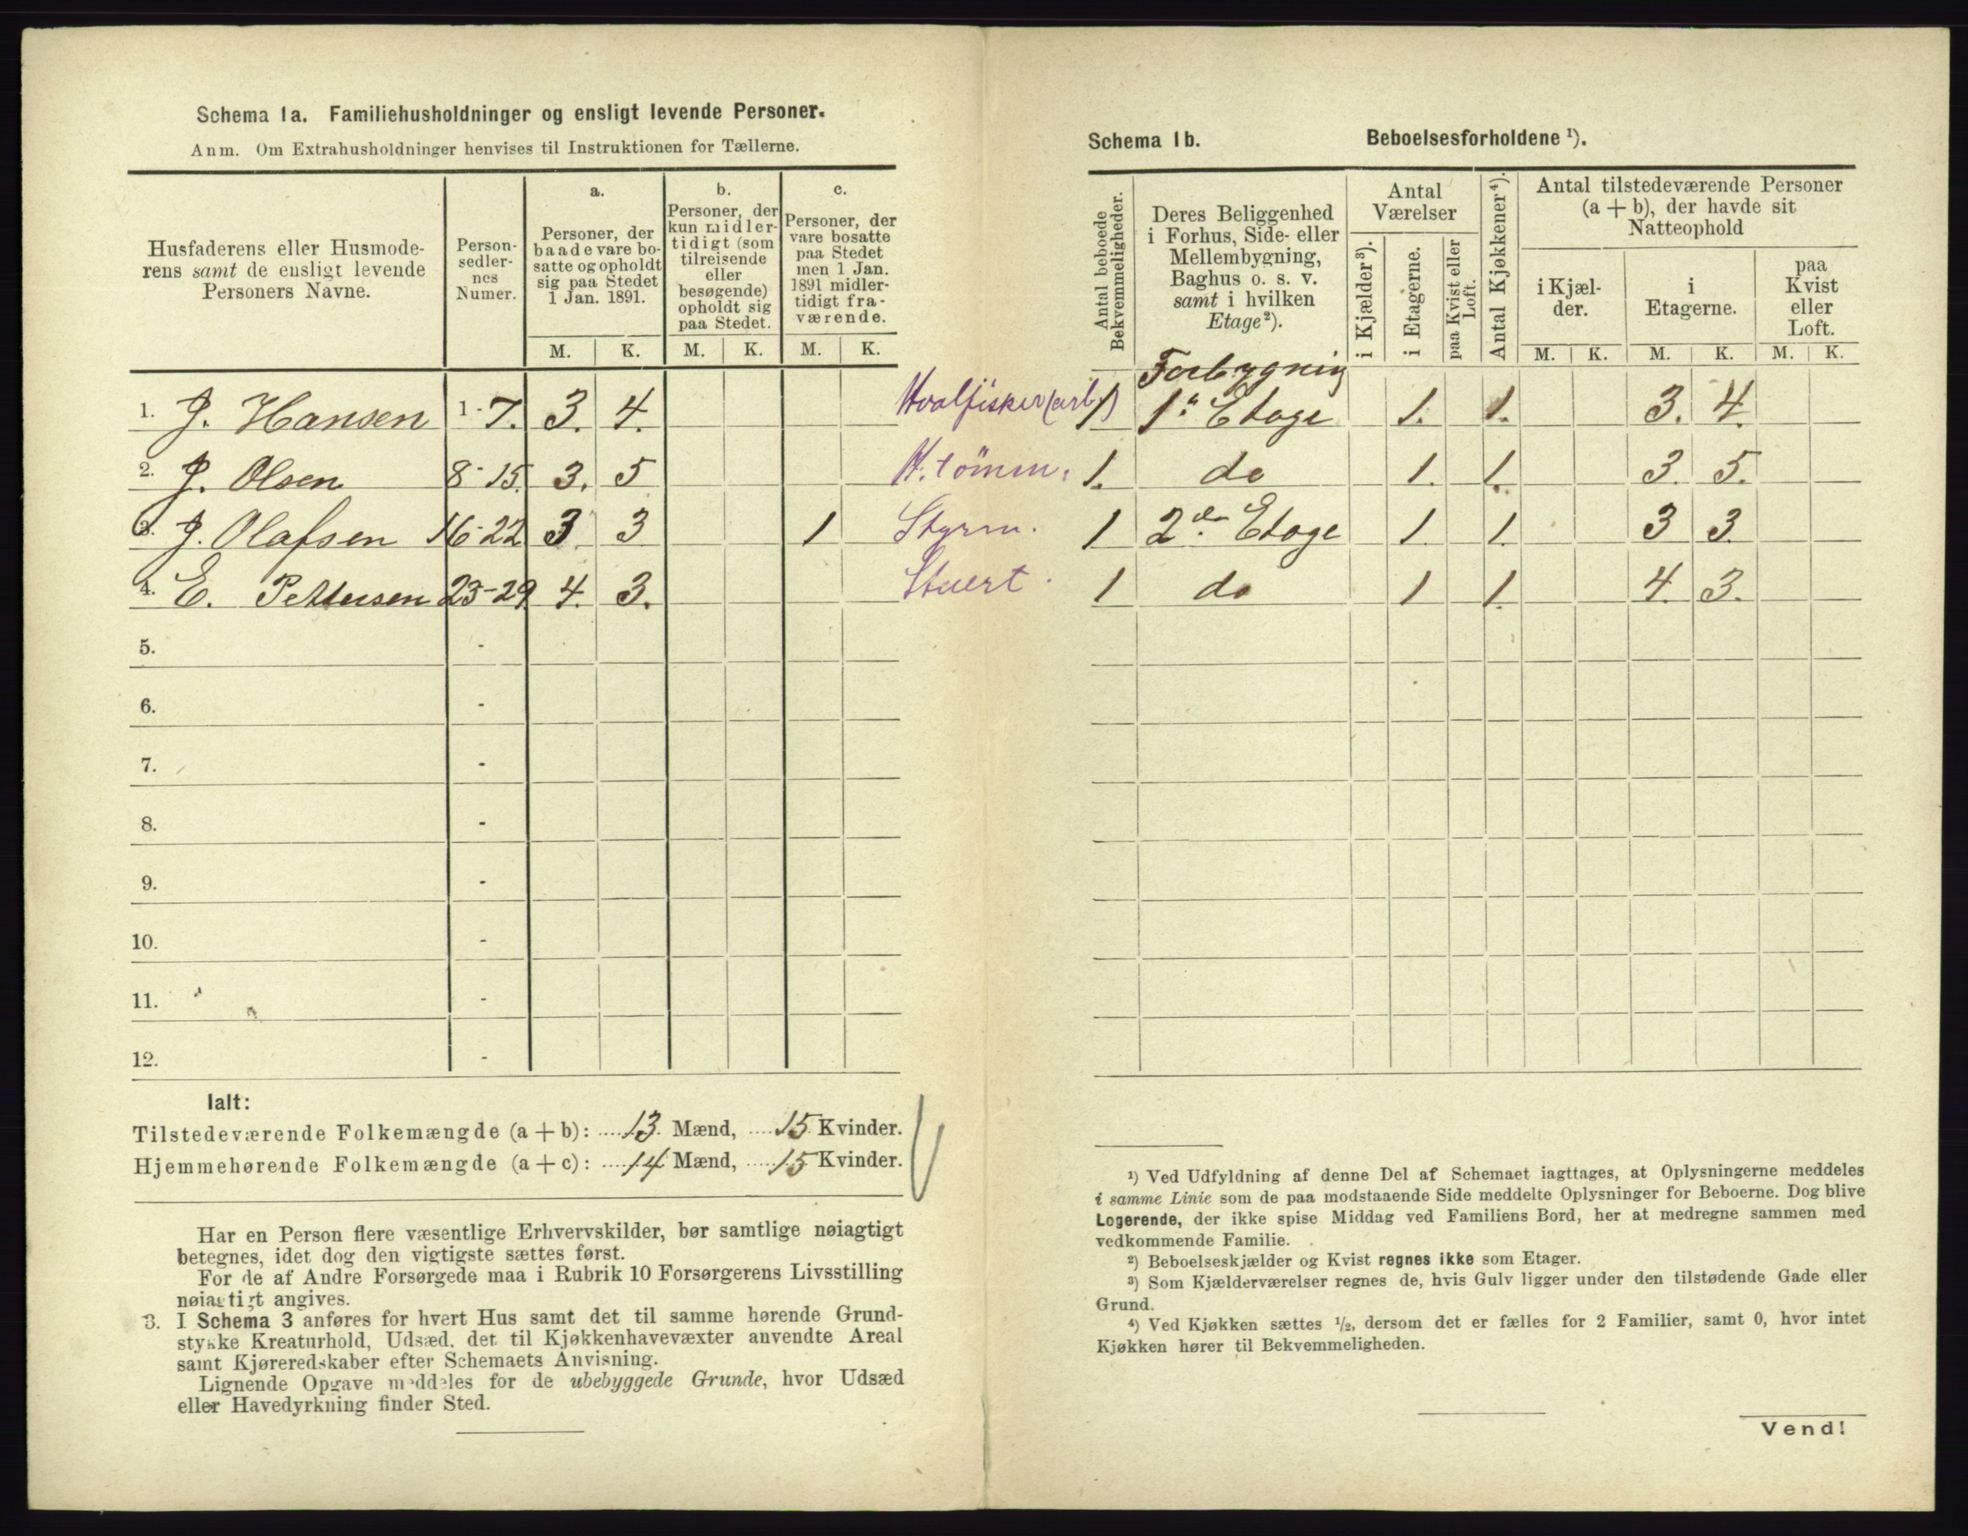 Schema 1a. Familiehusholdninger og ensligt levende Personer.
Anm. Om Extrahusholdninger henvises til Instruktionen for Tællerne.
Husfaderens eller Husmode-
rens samt de ensligt levende
Personers Navne.
Person-
sedler-
nes
Numer.
a.
Personer, der
baade vare bo-
satte og opholdt
sig paa Stedet
1 Jan. 1891.
b.
Personer, der
kun midler-
tidigt (som
tilreisende
eller
besøgende)
opholdt sig
paa Stedet.
c.
Personer, der
vare bosatte
paa Stedet
men 1 Jan.
1891 midler-
tidigt fra-
værende.
M. K. M. K. M. K.
1. J. Hansen 1-7. 3. 4. Hvalfisker (arb.)
2. J. Olsen 8-15. 3. 5 H. tömm.
3. J. Olafsen 16-22 3 3 1 Styrm.
4. E. Pettersen 23-29 4. 3. Stuert.
5. -
6. -
7. -
8. -
9. -
10. -
11. -
12. -
Ialt:
Tilstedeværende Folkemængde (a + b): 13. Mænd, 15 Kvinder.
Hjemmehørende Folkemængde (a + c): 14 Mænd, 15 Kvinder.
Har en Person flere væsentlige Erhvervskilder, bør samtlige nøiagtigt
betegnes, idet dog den vigtigste sættes først.
For de af Andre Forsørgede maa i Rubrik 10 Forsørgerens Livsstilling
nøiagtigt angives.
3. I Schema 3 anføres for hvert Hus samt det til samme hørende Grund-
stykke Kreaturhold, Udsæd, det til Kjøkkenhavevæxter anvendte Areal
samt Kjøreredskaber efter Schemaets Anvisning.
Lignende Opgave meddeles for de ubebyggede Grunde, hvor Udsæd
eller Havedyrkning finder Sted.
Schema 1b. Beboelsesforholdene ¹).
Antal beboede
Bekvemmeligheder.
Deres Beliggenhed
i Forhus, Side- eller
Mellembygning,
Baghus o. s. v.
samt i hvilken
Etage²).
Antal
Værelser
i Kjælder³).
i Etagerne.
paa Kvist eller
Loft.
Antal Kjøkkener⁴).
Antal tilstedeværende Personer
(a + b), der havde sit
Natteophold
i Kjæl-
der.
i
Etagerne.
paa
Kvist
eller
Loft.
M. K. M. K. M. K.
Forbygning
1 1ª Etage 1. 1. 3. 4.
1. do 1. 1. 3. 5.
1 2den Etage 1 1. 3 3.
1 do 1 1. 4. 3.
¹) Ved Udfyldning af denne Del af Schemaet iagttages, at Oplysningerne meddeles
i samme Linie som de paa modstaaende Side meddelte Oplysninger for Beboerne. Dog blive
Logerende, der ikke spise Middag ved Familiens Bord, her at medregne sammen med
vedkommende Familie.
²) Beboelseskjælder og Kvist regnes ikke som Etager.
³) Som Kjælderværelser regnes de, hvis Gulv ligger under den tilstødende Gade eller
Grund.
⁴) Ved Kjøkken sættes ½, dersom det er fælles for 2 Familier, samt 0, hvor intet
Kjøkken hører til Bekvemmeligheden.
Vend!